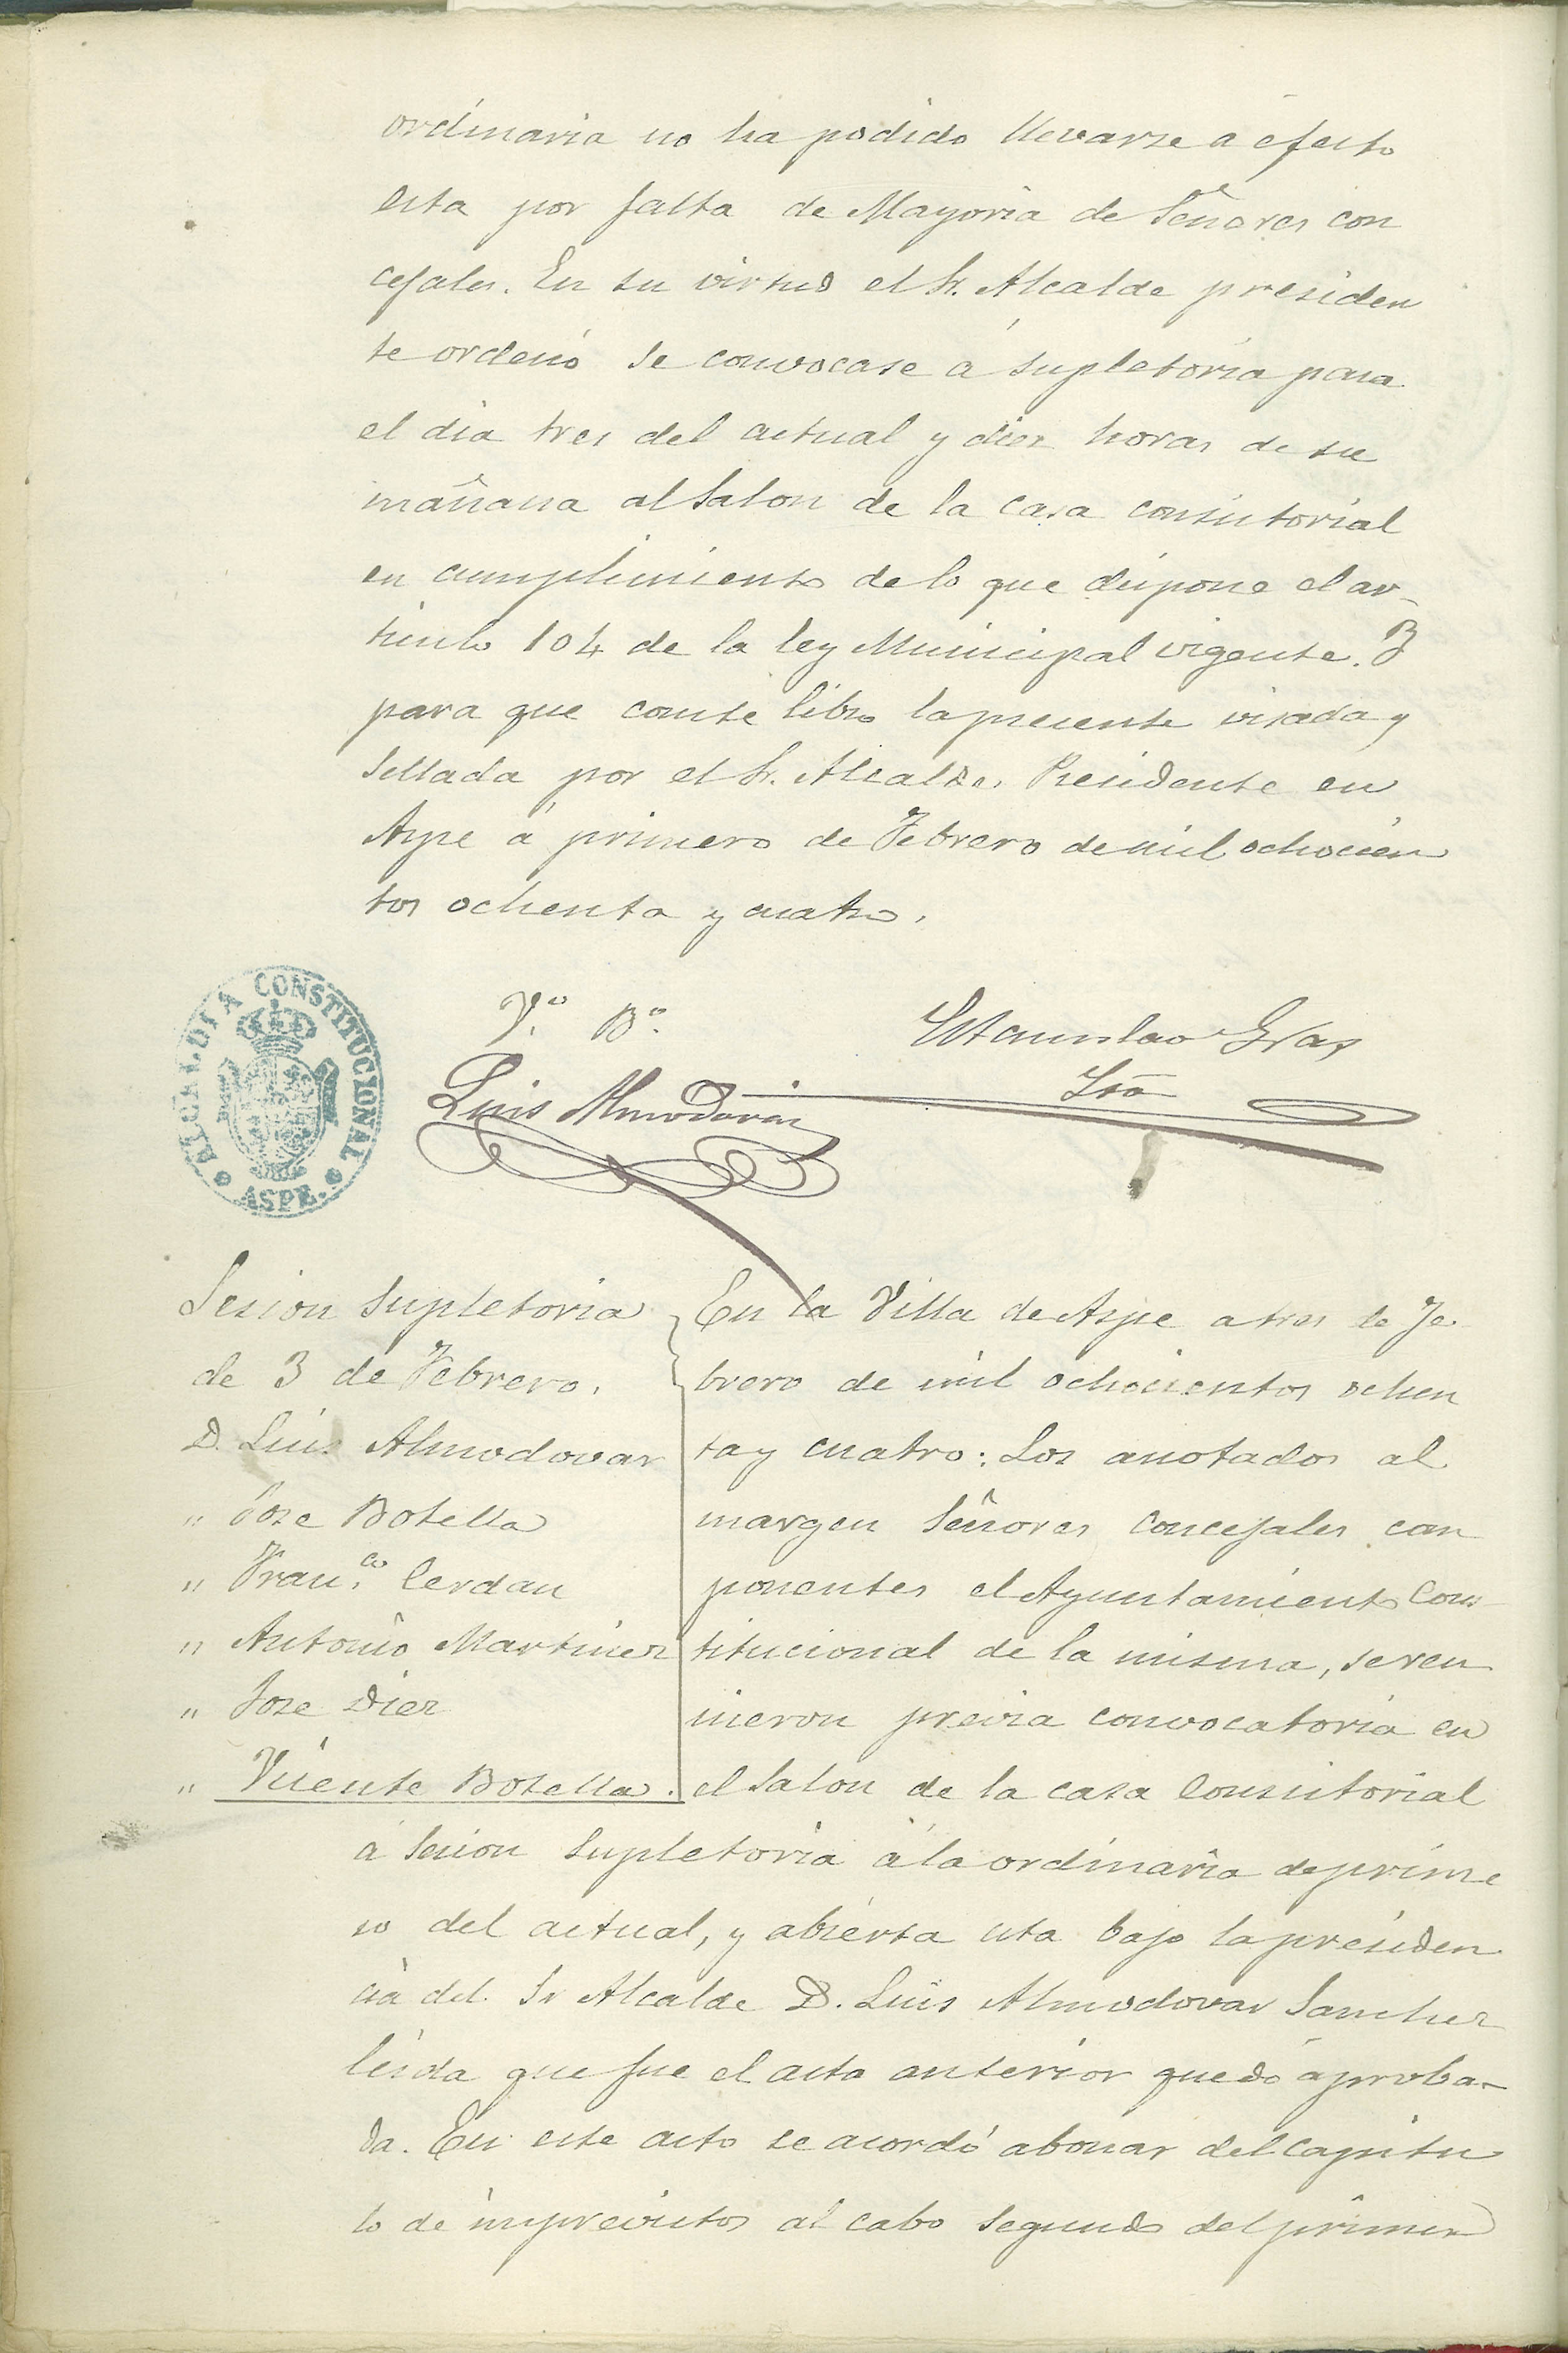 ordinaria no ha podido llevarse a efecto
esta por falta de Mayoria de Señores con
cejales. En su virtud el Sr. Alcalde presiden
te ordenó se convocase á supletoria para
el dia tres del actual y diez horas de su
mañana al Salon de la casa consistorial
en cumplimiento de lo que dispone el ar-
ticulo 104 de la ley Municipal vigente. Y
para que conste libro la presente visada y
sellada por el Sr. Alcalde, Presidente en
Aspe á primero de Febrero de mil ochocien
tos ochenta y cuatro.
ALCALDIA CONSTITUCIONAL
ASPE.
V.º B.º
Luis Almodovar
Estanislao Gras
Srio
Sesion Supletoria
de 3 de Febrero.
D. Luis Almodovar
" Jose Botella
" Fran.co Cerdan
" Antonio Martinez
" Jose Diez
" Vicente Botella.
En la Villa de Aspe a tres de Fe
brero de mil ochocientos ochen
ta y cuatro: Los anotados al
margen Señores concejales com
ponentes el Ayuntamiento Cons
titucional de la misma, se reu
nieron previa convocatoria en
el Salon de la casa Consistorial
á Sesion Supletoria á la ordinaria de prime
ro del actual, y abierta esta bajo la presiden
cia del Sr Alcalde D. Luis Almodovar Sanchez
leida que fue el acta anterior quedó aproba-
da. En este acto se acordó abonar del Capitu
lo de imprevistos al cabo segundo del primer